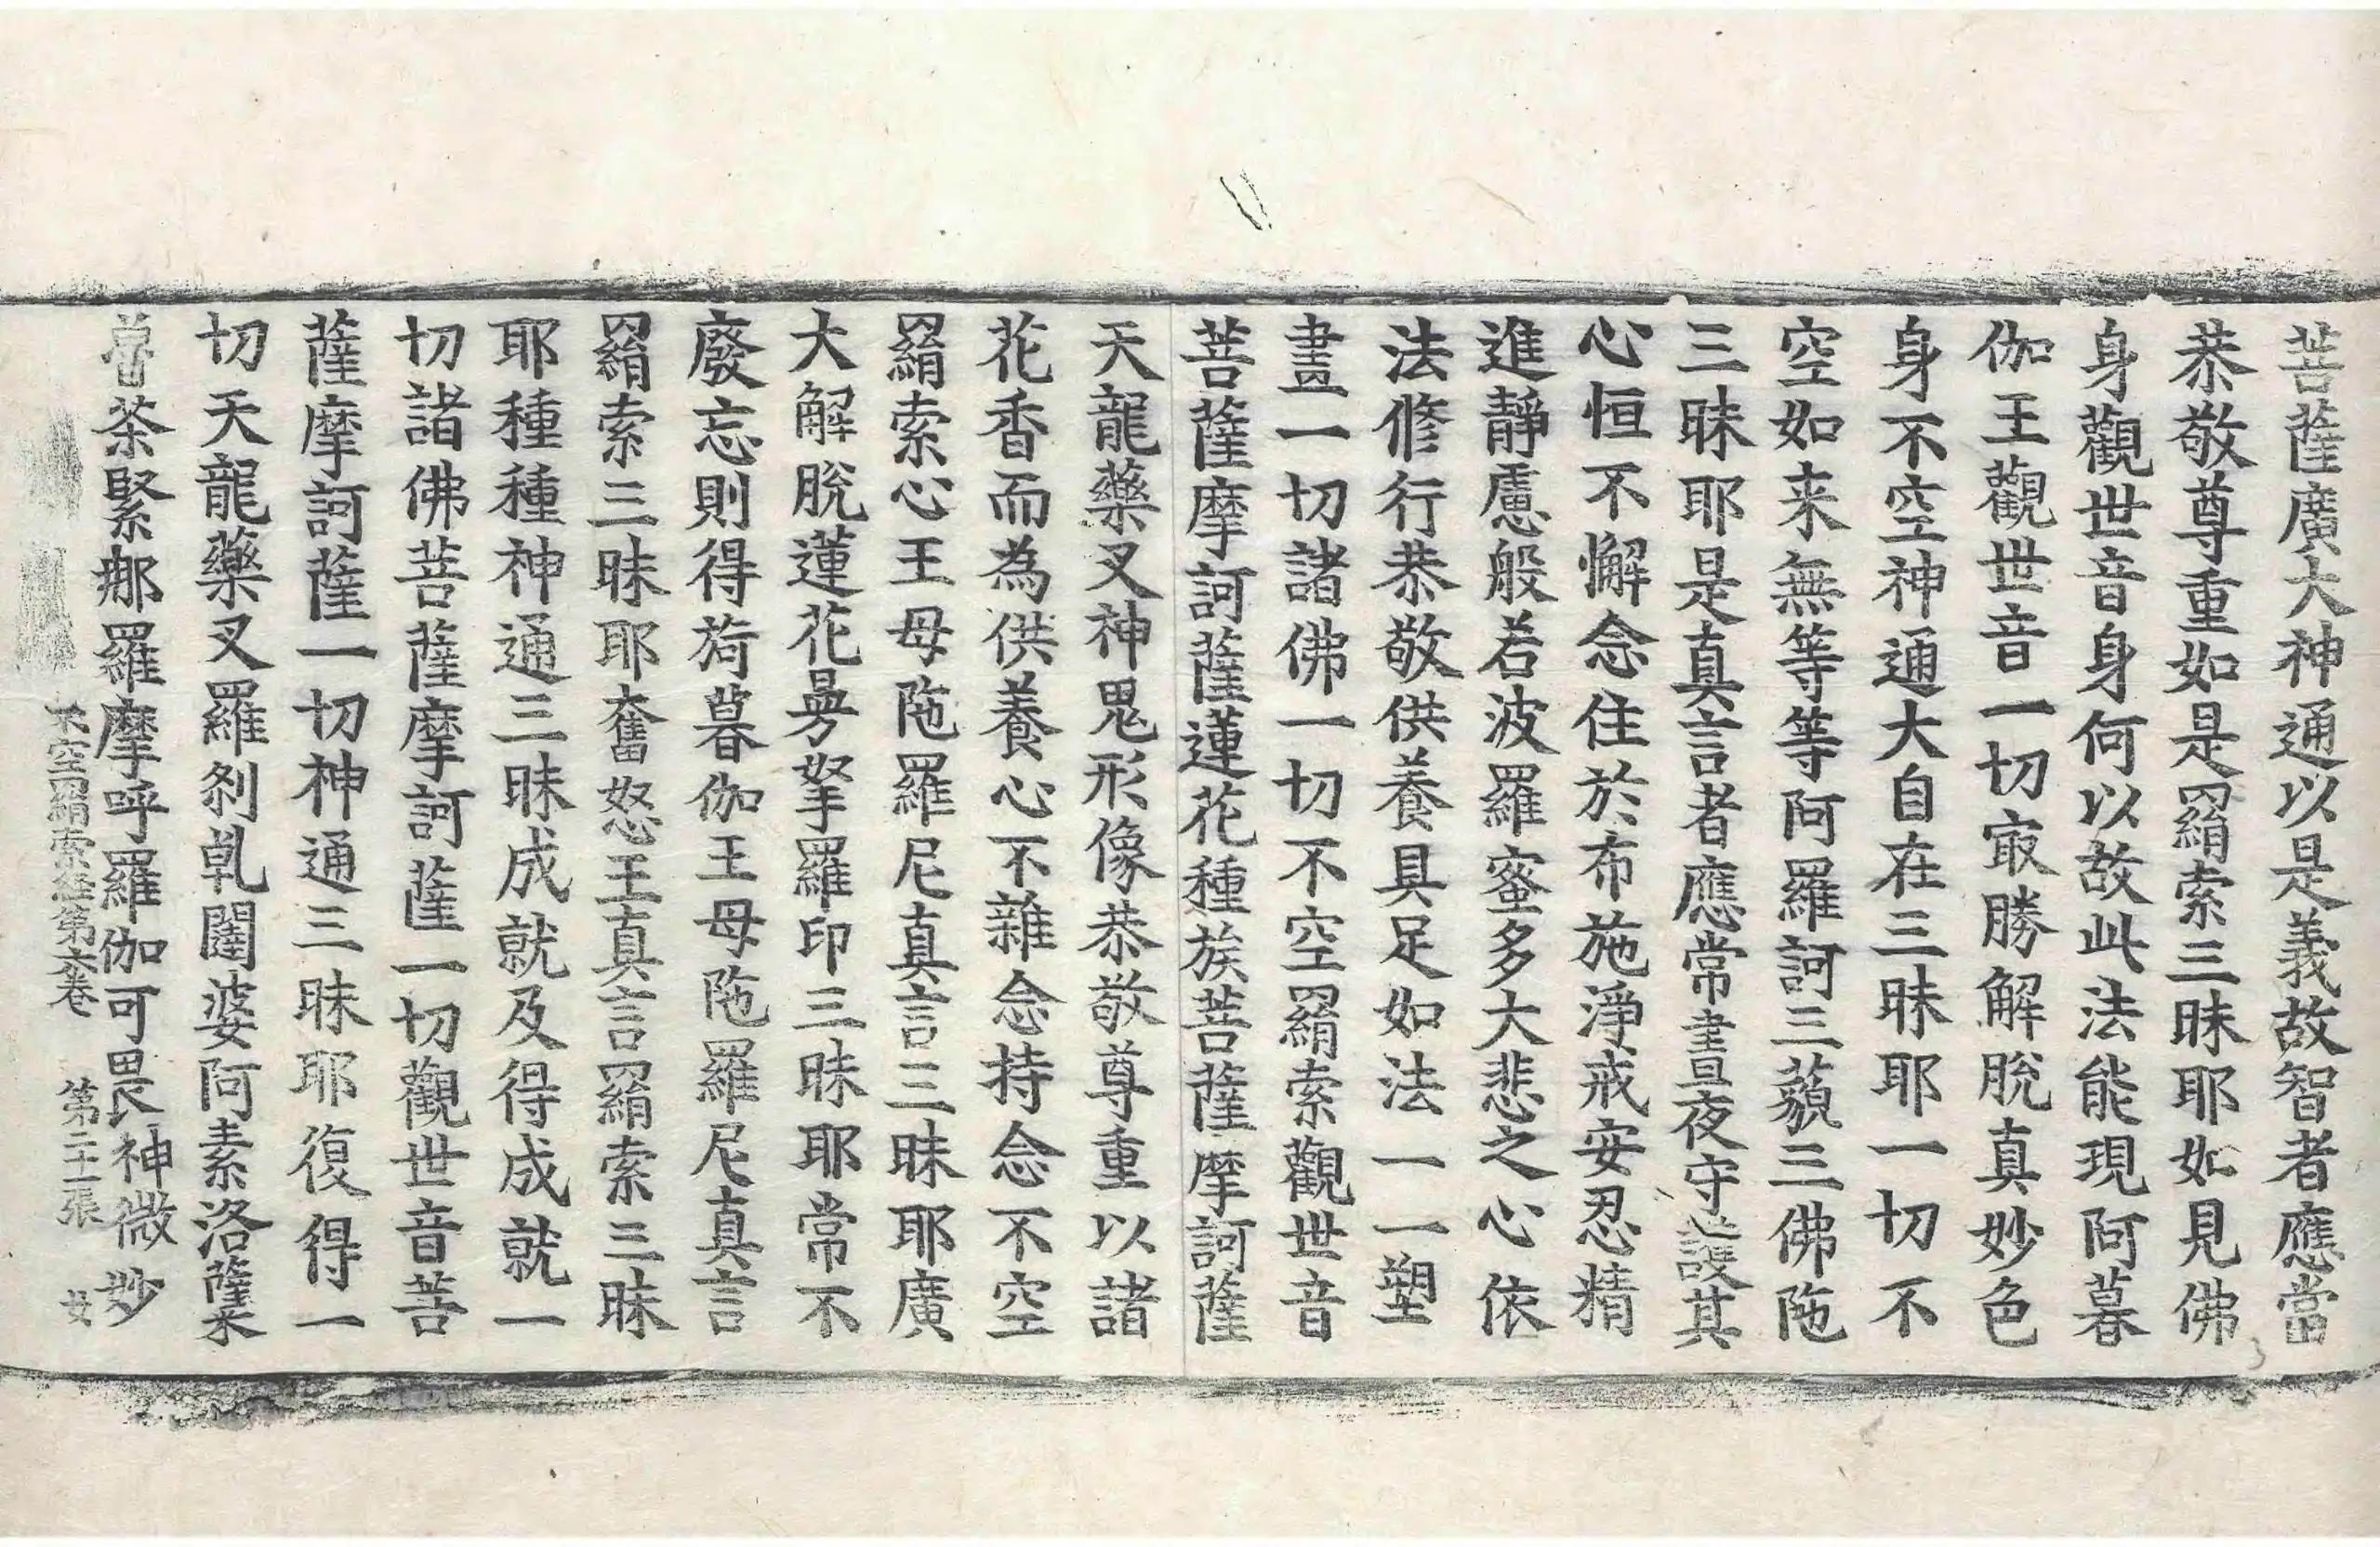 菩薩廣大神通以是義故智者應當
恭敬尊重如是羂索三昧耶如見佛
身觀世音身何以故此法能現阿暮
伽王觀世音一切㝡勝解脫真妙色
身不空神通大自在三昧耶一切不
空如来無等等阿羅訶三藐三佛陁
三昧耶是真言者應常晝夜守護其
心恒不懈念住於布施淨戒安忍精
進靜慮般若波羅蜜多大悲之心依
法修行恭敬供養具足如法一一塑
畫一切諸佛一切不空羂索觀世音
菩薩摩訶薩蓮花種族菩薩摩訶薩
天龍藥叉神鬼形像恭敬尊重以諸
花香而為供養心不雜念持念不空
羂索心王母陁羅尼真言三昧耶廣
大解脫蓮花曼拏羅印三昧耶常不
廢忘則得旖暮伽王母陁羅尼真言
羂索三昧耶奮怒王真言羂索三昧
耶種種神通三昧成就及得成就一
切諸佛菩薩摩訶薩一切觀世音菩
薩摩訶薩一切神通三昧耶復得一
切天龍藥叉羅刹乹闥婆阿素洛薩
荼緊那羅摩呼羅伽可畏神微妙
不空羂索経第六卷 第二十一張